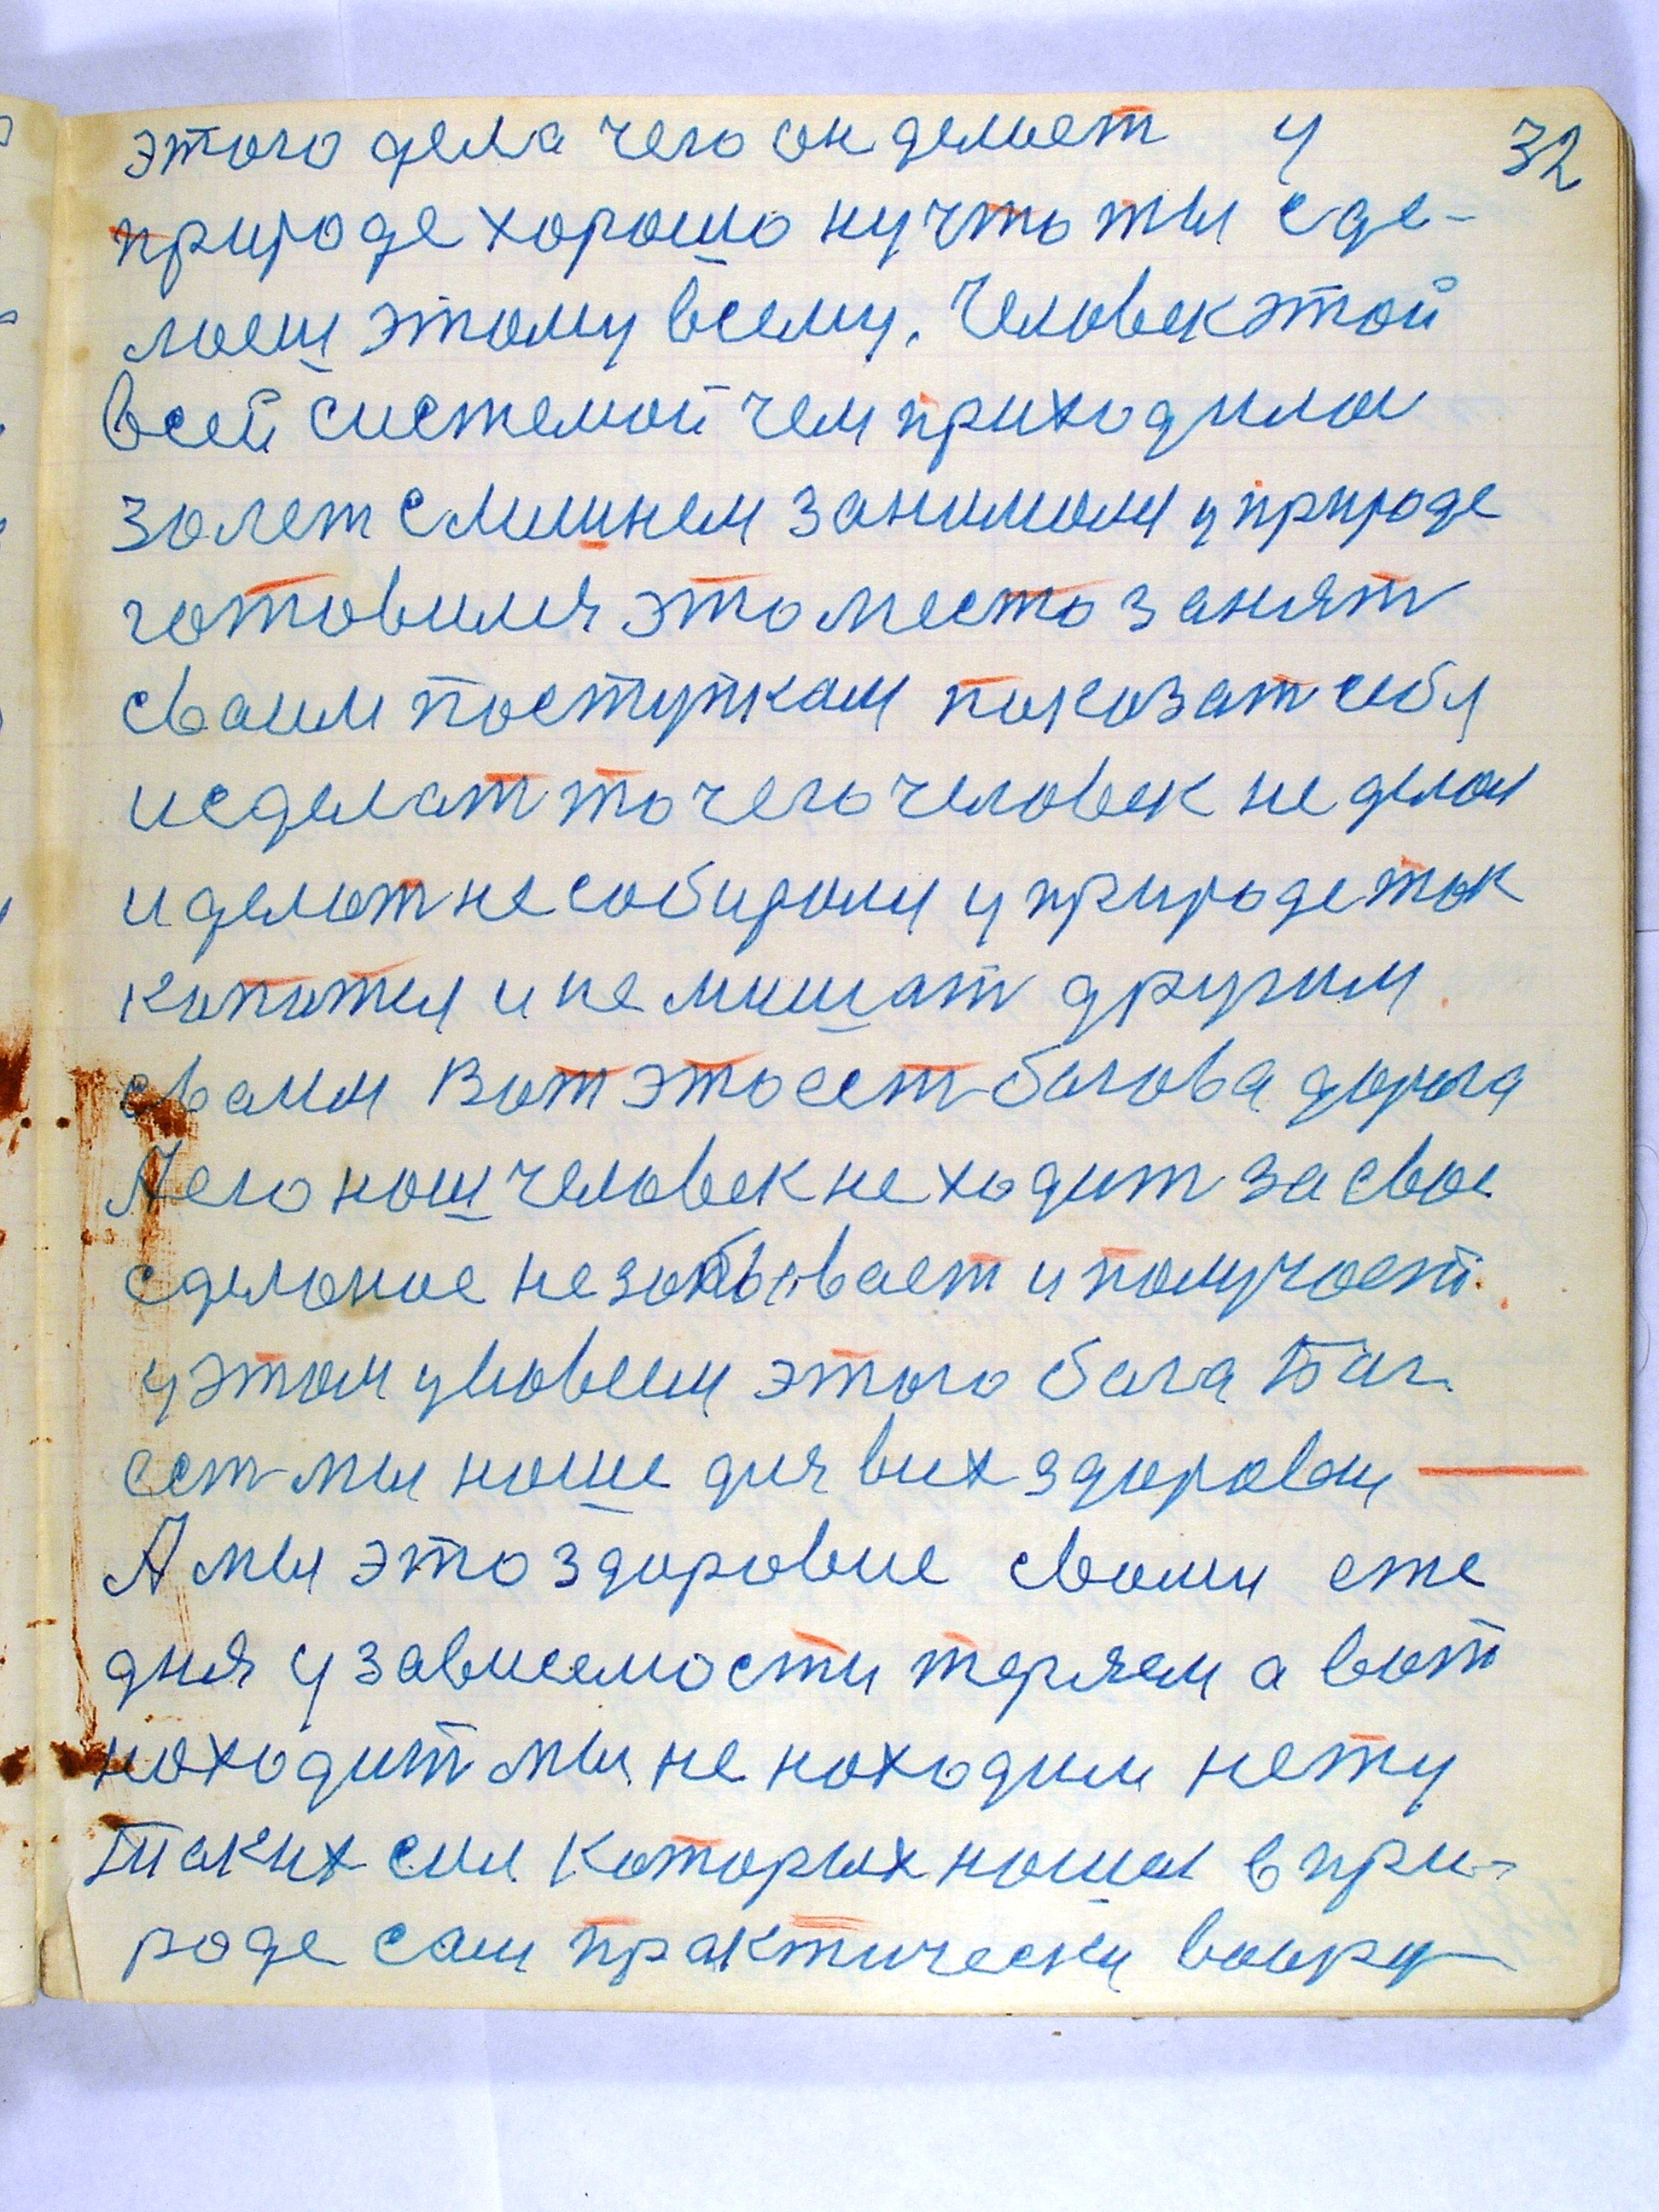 этого дела чего он делает у 32
природе хорошо ну что ты сде-
лаеш этому всему. Человек этой
всей системой чем приходилас
за лет с лишнем занимался у природе
готовился это место занят
сваим поступкам показат себя
и сделат то чего человек не делал
и делат не собирался у природе так
капатся и не мишат другим
сваим Вот это ест богова дорога
А его наш человек не ходит за свое
сделоное незабывает и получает.
у этом условеем этого бога Бог
ест мы наше для вих здоровя
А мы это здоровие сваим еже
дня у зависемости теряем а вот
находит мы не находим нету
таких сил которых нашол в при-
роде сам практически воору-